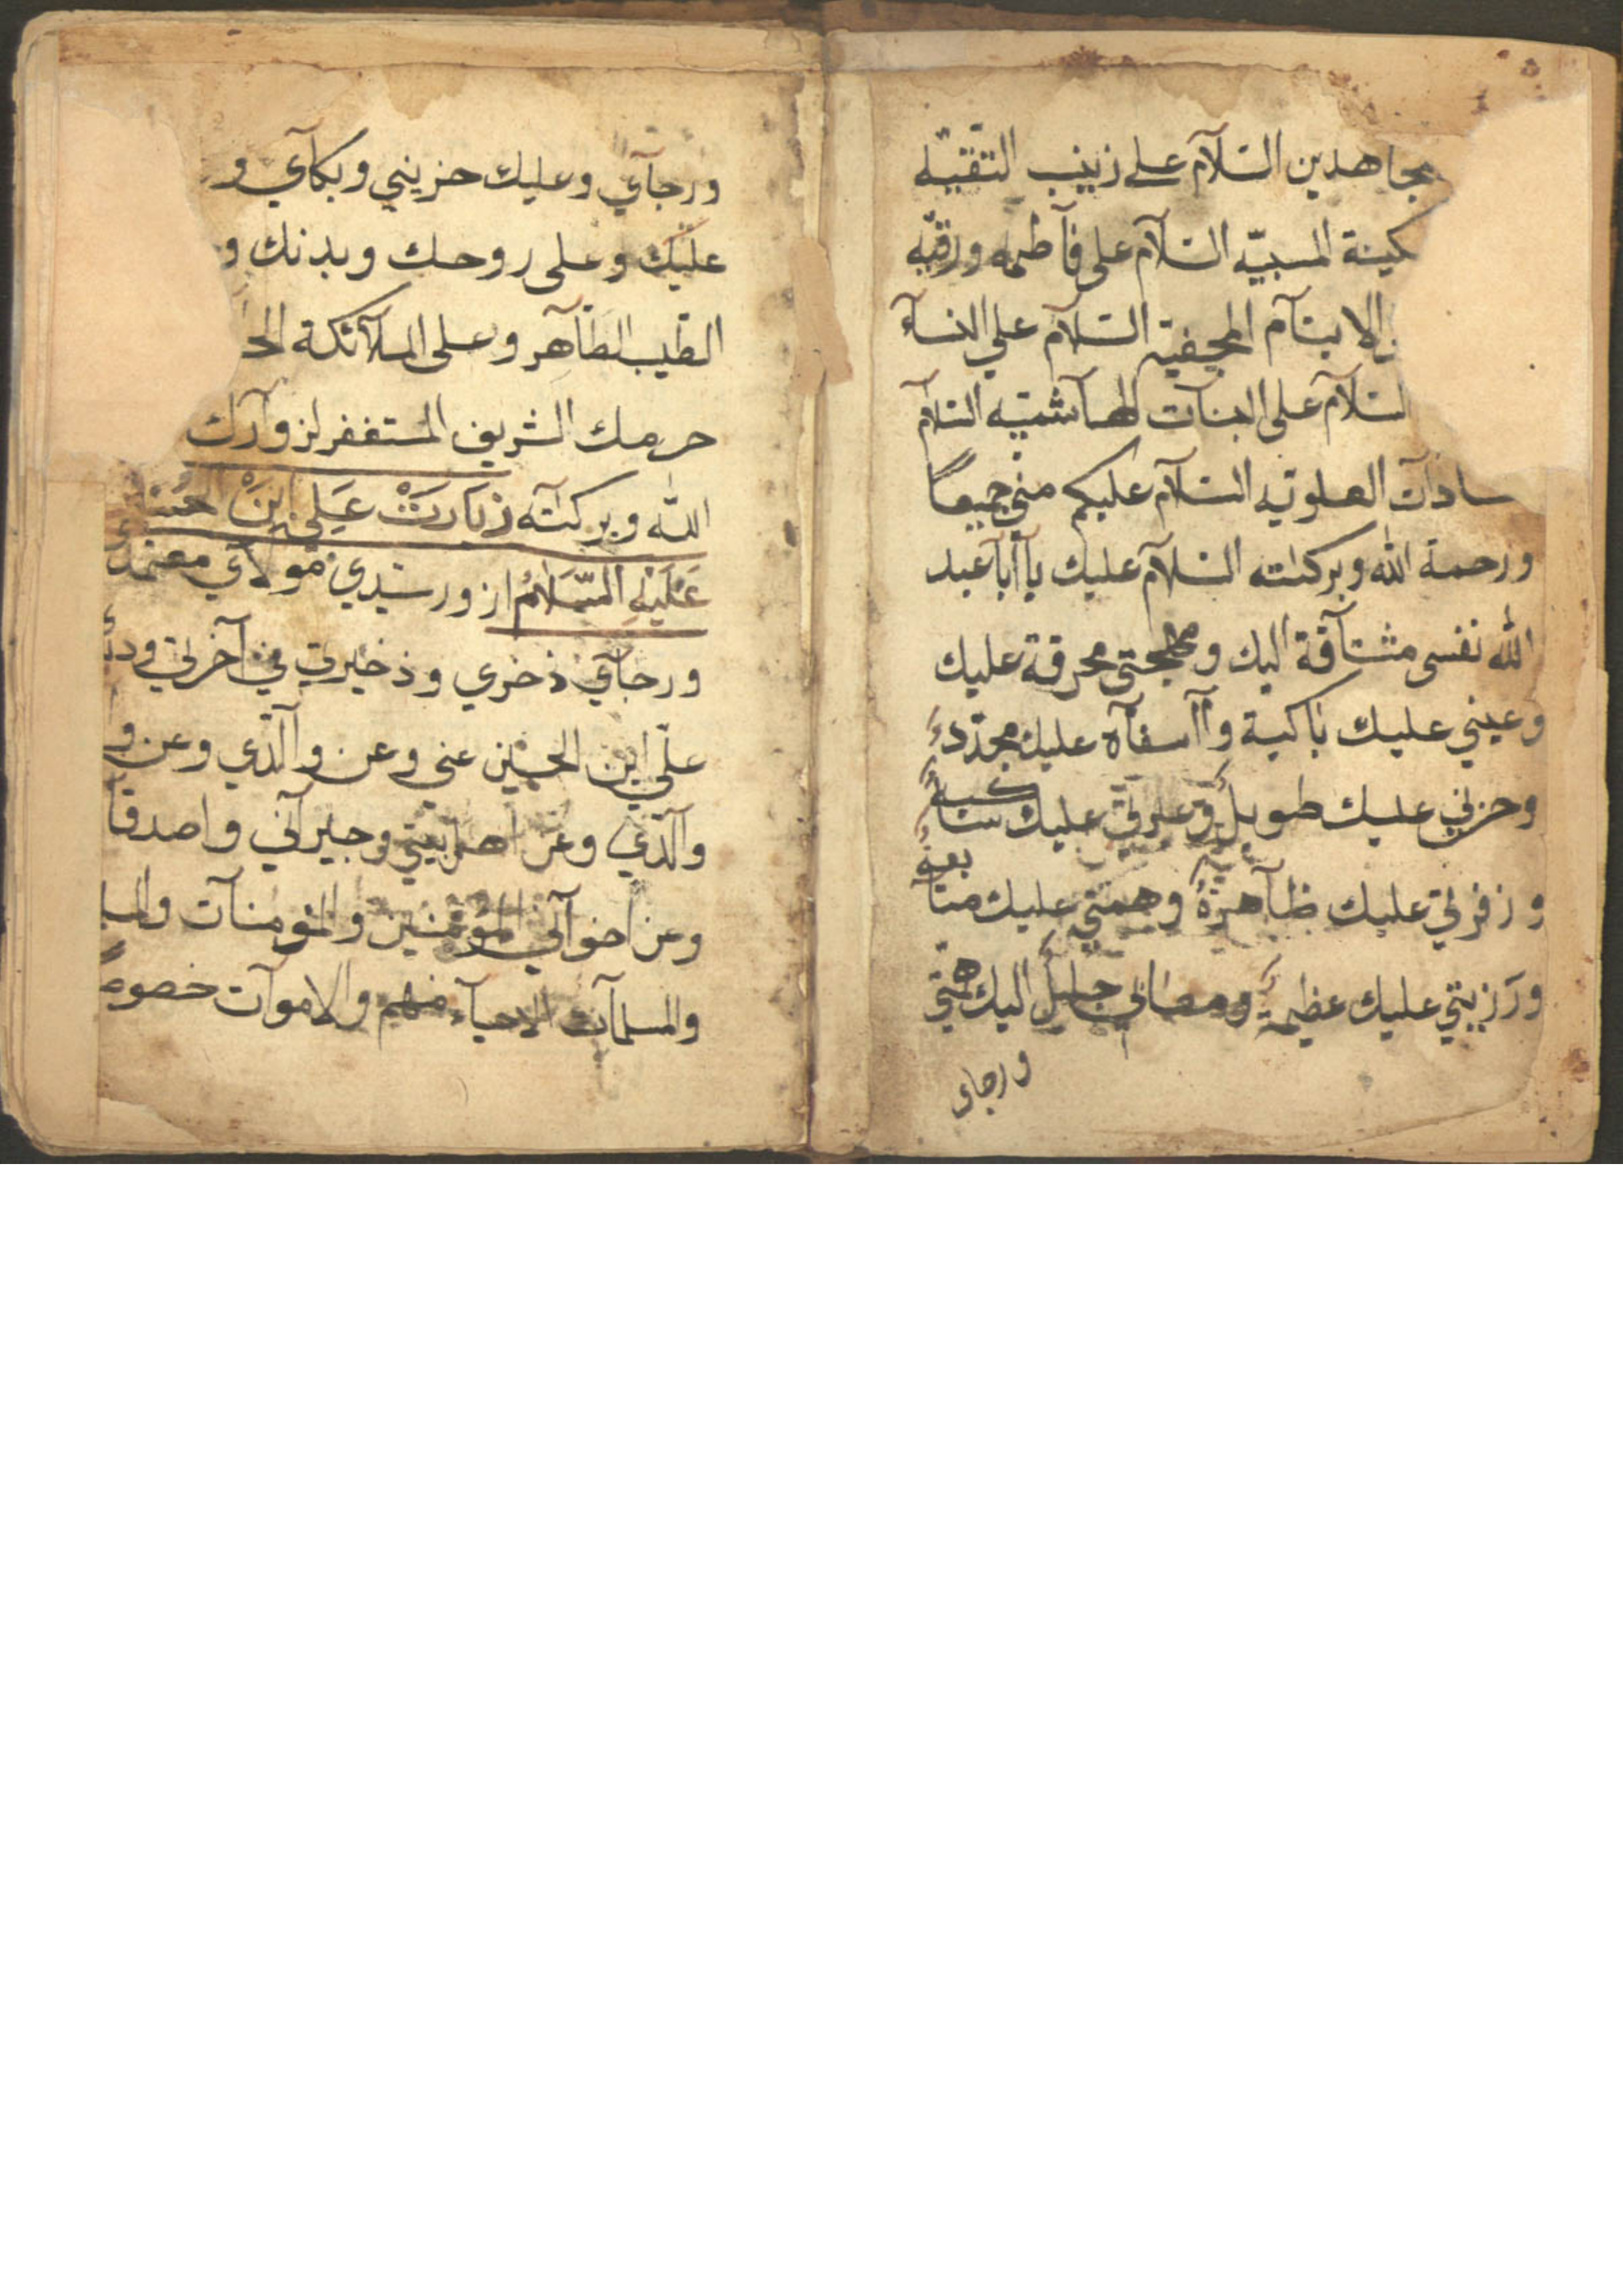 مجاهدين السّلآم على زينب التقيّه
كينة المسبيّه السّلآم على فآطمه ورقيّه
الايتآم السّلآم على النسآء
لسّلآم على البنآت الهآشميّه السّلآم
سادآت العلويّه السّلآم عليكم مني جميعاً
ورحمة الله وبركاته السّلآم عليك يآ أبآ عبد
الله نفسى مشتآقة اليك ومهجتى محرقة عليك
وعيني عليك باكية وآأسفآه عليك مجدّدة
وحزني عليك طويل وعبرتي عليك ساكبة
وزفرتي عليك ظآهرة وهمتي عليك متتابعة
ورزيتي عليك عظيمة ومصابي جليل اليك
ورجاى
ورجآي وعليك حزيني وبكآي و
عليك وعلى روحك وبدنك و
الطيب الطآهر وعلى الملآئكة الحا
حرمك الشريف المستغفر لزوآرك
الله وبركآته زيَارَتْ عَلى ابنْ
عَلَيْهِ السَّلامُ ازور سيّدي مولآي معتمدي
ورجآي ذخري وذخيرتي في آخرتي ودن
علّي ابن الحسين عني وعن وآلدي وعن و
وآلدّي وعن اهل بيتي وجيرآني واصدقآ
وعن اخوآني المؤمنين والمؤمنآت والمسل
والمسلمآت الاحيآء منهم والاموآت خصوص